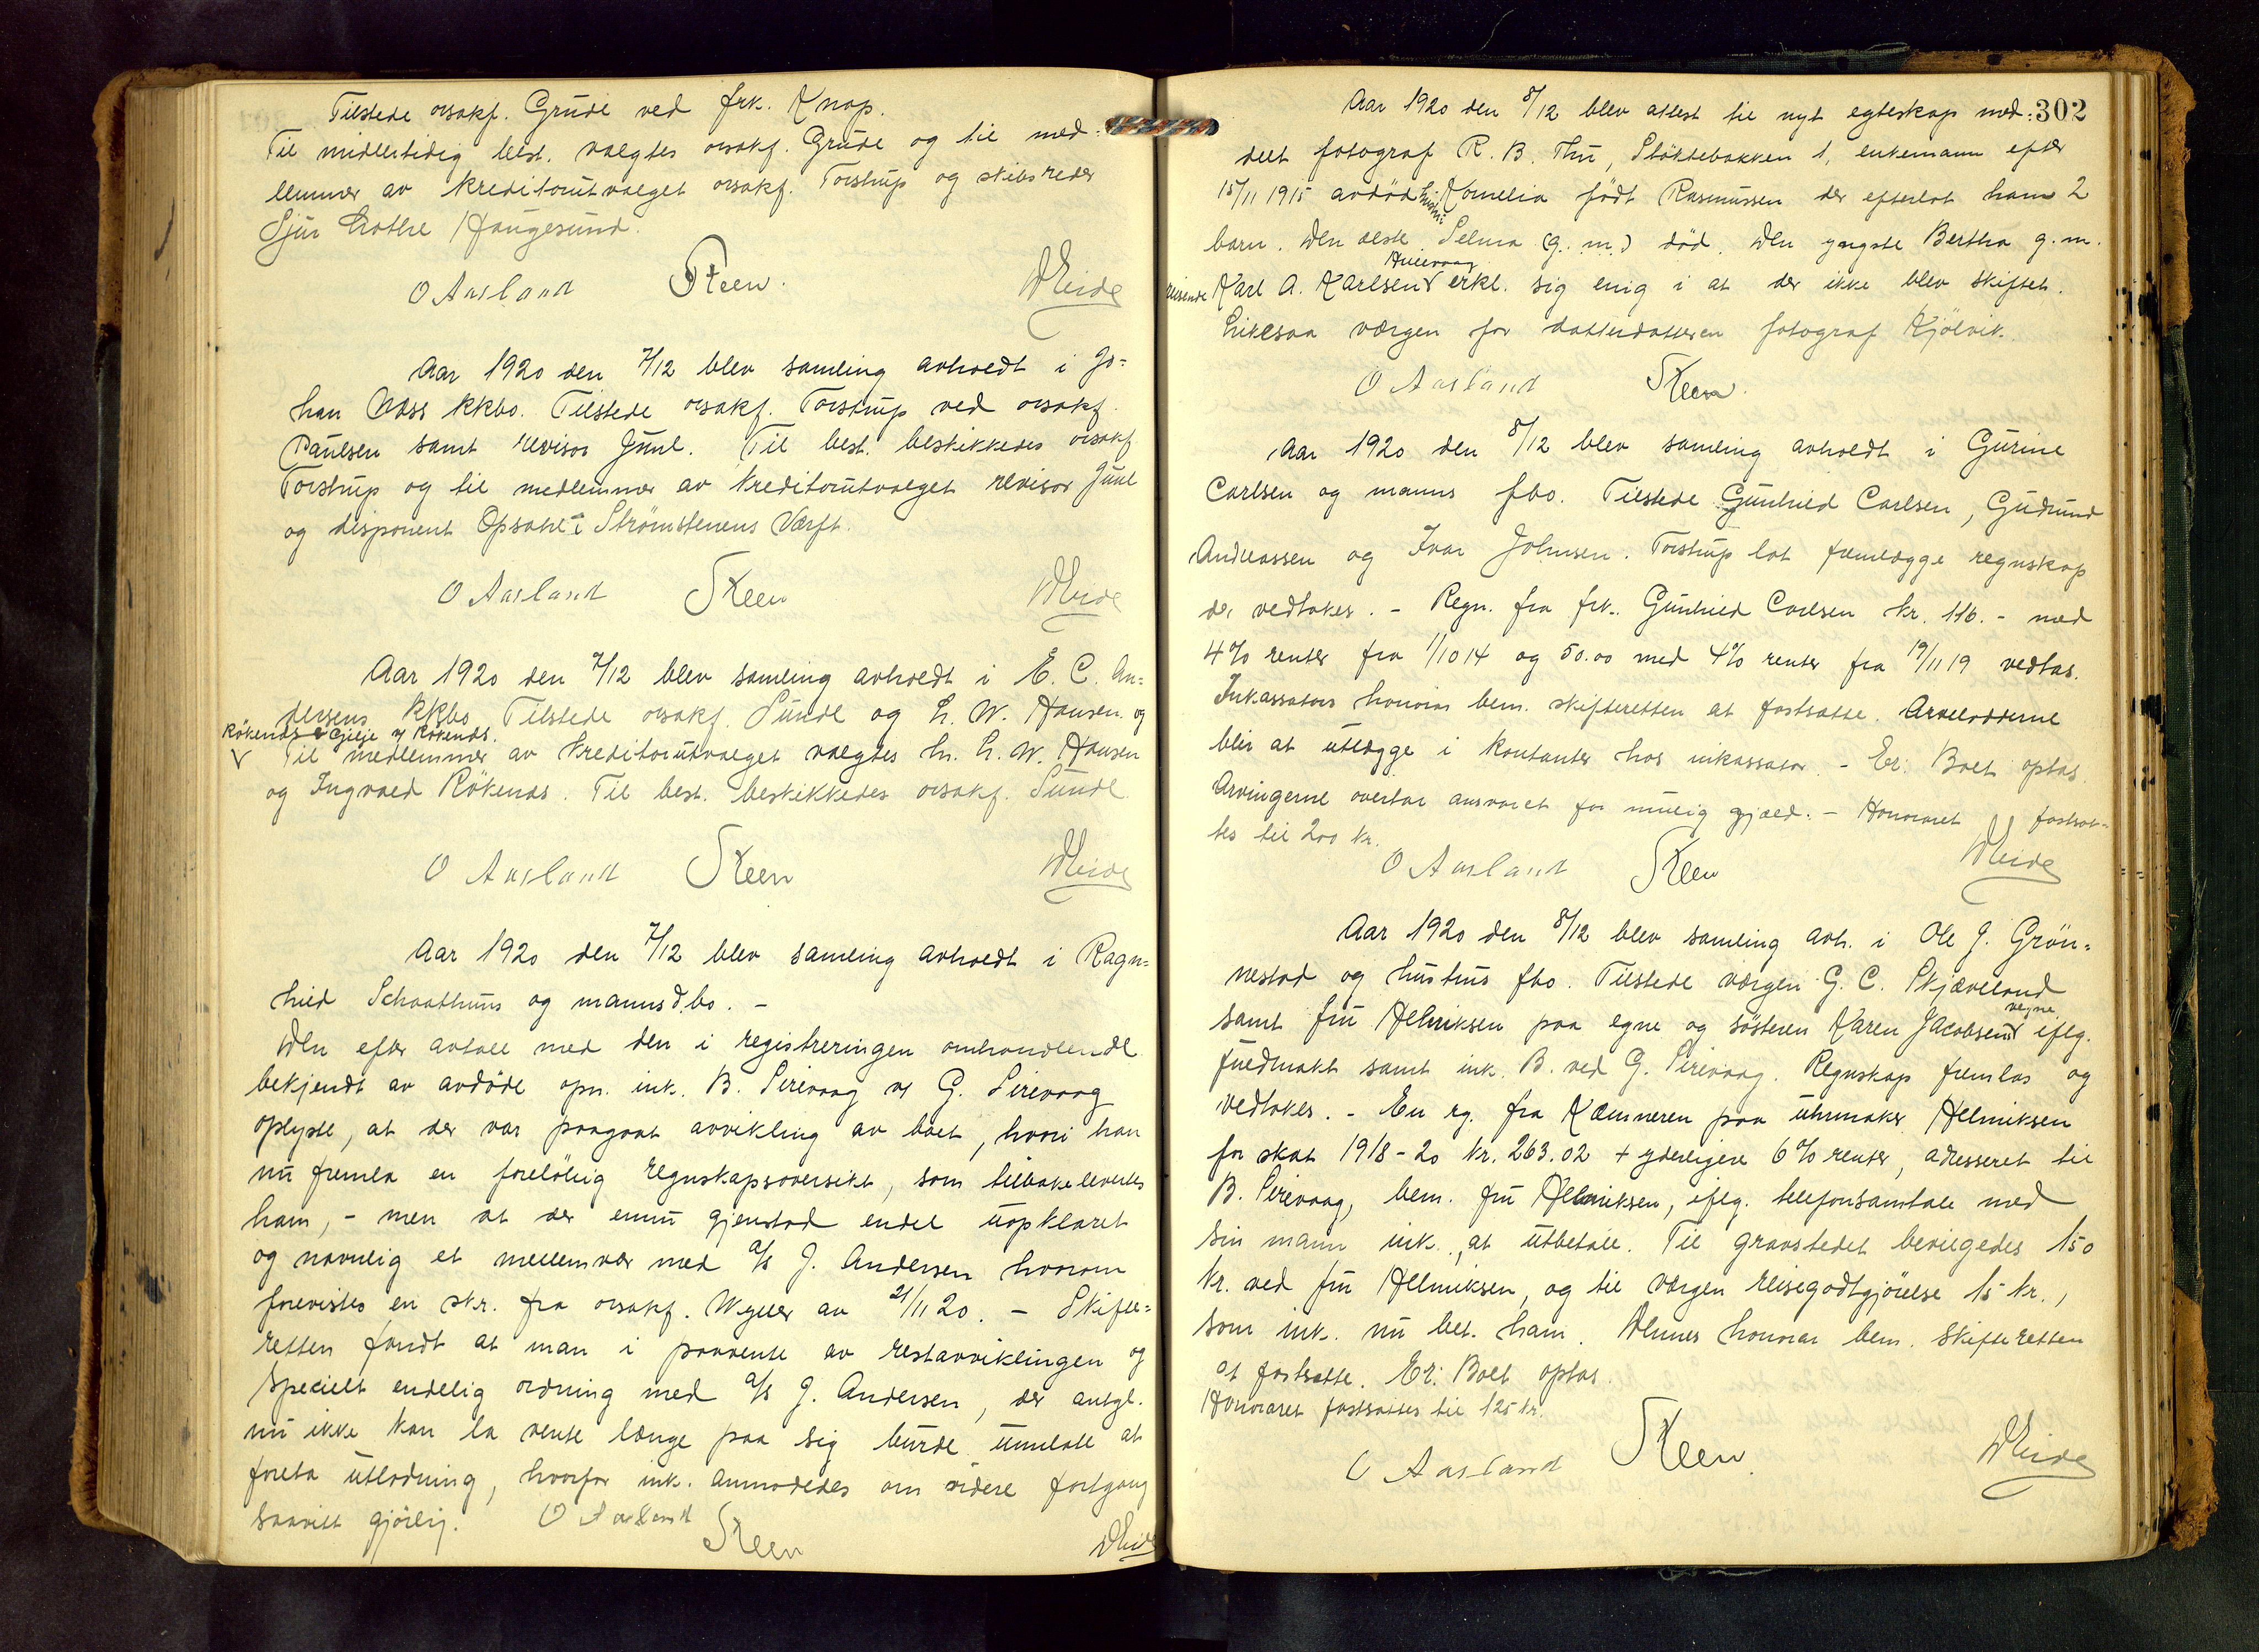 Tilstede orsakf. Grude ved frk. Knap.
Til midlertidig best. valgtes orsakf. Grude og til med-
lemmer av kreditorutvalget orsakf. Torstrup og skibsreder
Sjur Lothe Haugesund.
O Aasland Steen. WEide
Aar 1920 den 7/12 blev samling avholdt i Jo-
han Næss kkbo. Tilstede orsakf. Torstrup ved orsakf.
Paulsen samt revisor Juul. Til best. beskikkedes orsakf
Torstrup og til medlemmer av kreditorutvalget revisor Juul
og disponent Opsahl i Strømstenens Værft.
O Aasland Steen WEide
Aar 1920 den 7/12 blev samling avholdt i E. C. An-
dersens kkbo Tilstede orsakf. Sunde og L. W. Hansen og
Rökenæs & Gilje v/ Rökenæs.
Til medlemmer av kreditorutvalget valgtes hr. L. W. Hansen
og Ingvald Rökenæs. Til best. beskikkedes orsakf. Sunde
O Aasland Steen WEide
Aar 1920 den 7/12 blev samling avholdt i Ragn-
hild Schaathuns og manns d.bo. -
Den efter avtale med den i registreringen omhandlende
bekjendt av avdöde opn. ink. B. Sirevaag v/ G. Sirevaag
oplyste, at der var paagaat avvikling av boet, hvori han
nu fremla en forelöbig regnskapsoversikt, som tilbakelevertes
ham, - men at der ennu gjenstod endel uopklaret
og navnlig et mellemvær med a/s J. Andersen hvorom
forevistes en skr. fra orsakf. Wyller av 21/11 20. - Skifte-
retten fandt at man i paavente av restavviklingen og
specielt endelig ordning med a/s J. Andersen, der antgl.
nu ikke kan la vente længe paa sig burde unnlate at
foreta utlodning, hvorfor ink. anmodedes om videre fortgang
saavitt gjörlig. O Aasland Steen WEide
302
Aar 1920 den 8/12 blev attest til nyt egteskap med-
delt fotograf R. B. Thu, Støktebakken 1, enkemann efter
15/11 1915 avdöd hustru Kornelia födt Rasmussen der efterlot ham 2
barn. Den ælste Selma (g. m.) död. Den yngste Bertha g. m.
reisende Karl A. Karlsen Hillevaag erkl. sig enig i at der ikke blev skiftet.
Likesaa værgen for datterdatteren fotograf Kjölvik.
O Aasland Steen.
Aar 1920 den 8/12 blev samling avholdt i Gurine
Carlsen og manns fbo. Tilstede Gunhild Carlsen, Gudrund
Andreassen og Ivar Johnsen. Torstrup lot fremlægge regnskap
der vedtokes. - Regn. fra frk. Gunhild Carlsen kr. 116.- med
4% renter fra 1/10 14 og 50.00 med 4% renter fra 19/11 19 vedtas.
Inkassators honorar bem. skifteretten at fastsætte. Arvelodderne
blir at utlægge i kontanter hos inkassator. - Er: Boet optas.
Arvingerne overtar ansvaret for mulig gjæld. - Honoraret fastsæt-
tes til 200 kr.
O Aasland Steen WEide
Aar 1920 den 8/12 blev samling avh. i Ole J. Grön-
nestad og hustrus fbo. Tilstede værgen G. C. Skjæveland
samt fru Helmiksen paa egne og sösteren Karen Jacobsens vegne iflg.
fuldmakt samt ink. B. ved G. Sirevaag. Regnskap fremlas og
vedtokes. - En rg. fra Kæmneren paa uhrmaker Helmiksen
for skat 1918-20 kr. 263.02 + yderligere 6% renter, adresseret til
B. Sirevaag, bem. fru Helmiksen, iflg. telefonsamtale med
sin mann ink. at utbetale. Til gravstedet bevilgedes 150
kr. ved fru Helmiksen, og til værgen reisegodtgjörelse 15 kr.,
som ink. nu bet. ham. Dennes honorar bem. skifteretten
at fastsætte. Er: Boet optas.
Honoraret fastsættes til 125 kr.
O Aasland Steen. WEide